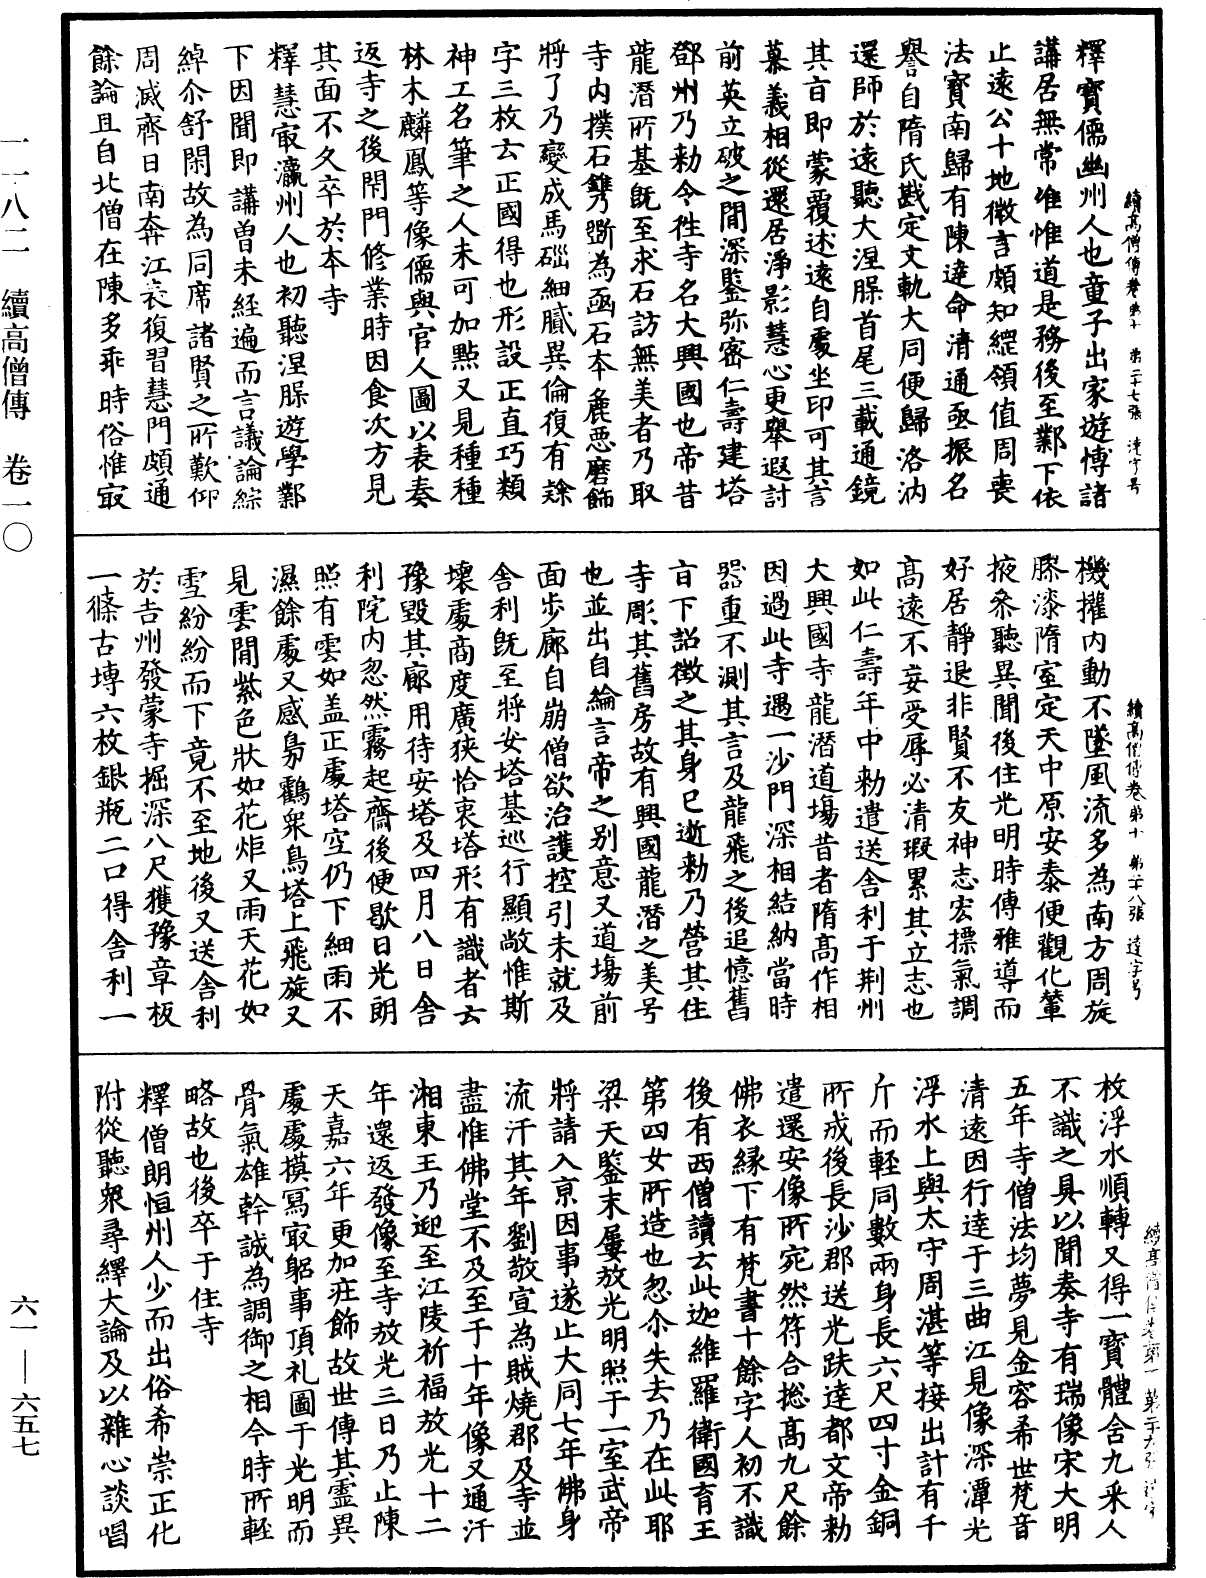 釋寶儒幽州人也童子出家遊博諸
講居無常准惟道是務後至鄴下依
止遠公十地微言頗知綱領值周喪
法寶南歸有陳達命清通亟振名
譽自隋氏戡定文軌大同便歸洛汭
還師於遠聽大涅槃首尾三載通鏡
其旨即蒙覆述遠自處坐印可其言
慕義相從還居淨影慧心更舉遐討
前英立破之間深鑒弥密仁壽建塔
鄧州乃勑令往寺名大興國也帝昔
龍潛所基既至求石訪無美者乃取
寺内撲石鐫斵為函石本麁惡磨飾
將了乃變成馬碯細膩異倫復有隸
字三枚云正國得也形設正直巧類
神工名筆之人未可加點又見種種
林木麟鳳等像儒與官人圖以表奏
返寺之後閇門修業時因食次方見
其面不久卒於本寺
釋慧㝡瀛州人也初聽涅槃遊學鄴
下因聞即講曽未経遍而言議論綜
綽尒舒閑故為同席諸賢之所歎仰
周滅齊日南奔江表復習慧門頗通
餘論且自北僧在陳多乖時俗惟㝡
續高僧傳卷第十 第二十七張 達字号
機權内動不墜風流多為南方周旋
膝漆隋室定天中原安泰便觀化輦
掖叅聽異聞後住光明時傳雅導而
好居靜退非賢不友神志宏摽氣調
高遠不妄受辱必清瑕累其立志也
如此仁壽年中勑遣送舎利于荆州
大興國寺龍潛道場昔者隋高作相
因過此寺遇一沙門深相結納當時
器重不測其言及龍飛之後追憶舊
旨下詔徵之其身已逝勑乃營其住
寺彫其舊房故有興國龍潛之美号
也並出自綸言帝之别意又道場前
面歩廊自崩僧欲治護控引未就及
舎利既至將安塔基巡行顯敞惟斯
壊處商度廣狹恰衷塔形有識者云
豫毀其廊用待安塔及四月八日舎
利院内忽然霧起齋後便歇日光朗
照有雲如盖正處塔空仍下細雨不
濕餘處又感鳥鸛衆鳥塔上飛旋又
見雲間紫色狀如花炬又雨天花如
雪紛紛而下竟不至地後又送舎利
於吉州發蒙寺掘深八尺獲豫章板
一條古塼六枚銀瓶二口得舎利一
續高僧傳卷第十 第二十八張 達字号
枚浮水順轉又得一寳體舎九采人
不識之具以聞奏寺有瑞像宋大明
五年寺僧法均夢見金容希世梵音
清遠因行達于三曲江見像深潭光
浮水上與太守周湛等接出計有千
斤而輕同數兩身長六尺四寸金銅
所成後長沙郡送光趺達都文帝勑
遣還安像所宛然符合捴高九尺餘
佛衣緣下有梵書十餘字人初不識
後有西僧讀云此迦維羅衛國育王
第四女所造也忽尒失去乃在此耶
梁天鑒末屢放光明照于一室武帝
將請入京因事遂止大同七年佛身
流汗其年劉敬宣為賊燒郡及寺並
盡惟佛堂不及至于十年像又通汗
湘東王乃迎至江陵祈福放光十二
年還返發像至寺放光三日乃止陳
天嘉六年更加荘飾故世傳其霊異
處處摸冩㝡貂事頂礼圖于光明而
骨氣雄幹誠為調御之相今時所輕
略故也後卒于住寺
釋僧朗恒州人少而出俗希崇正化
附從聽衆尋繹大論及以雜心談唱
一一八二 續高僧傳 卷一〇
六一——六五七